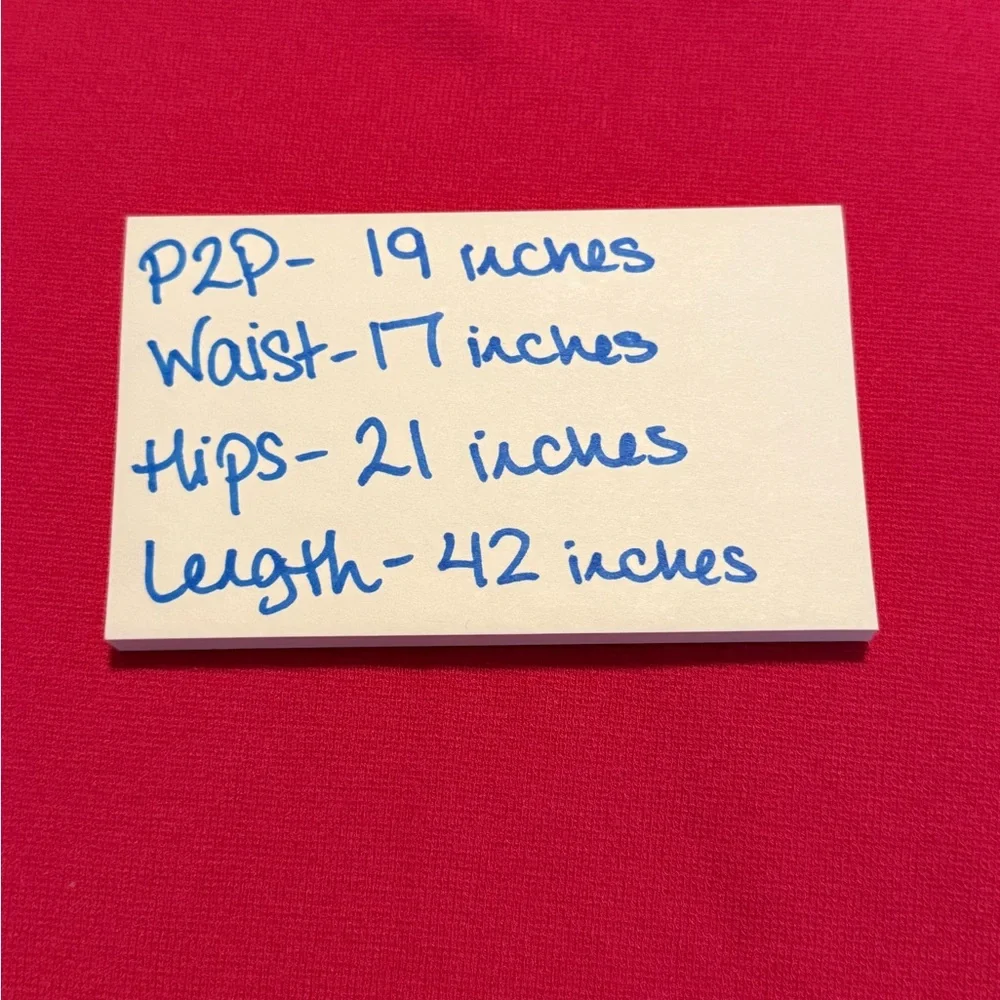 P2P- 19 inches
Waist- 17 inches
Hips- 21 inches
Length- 42 inches